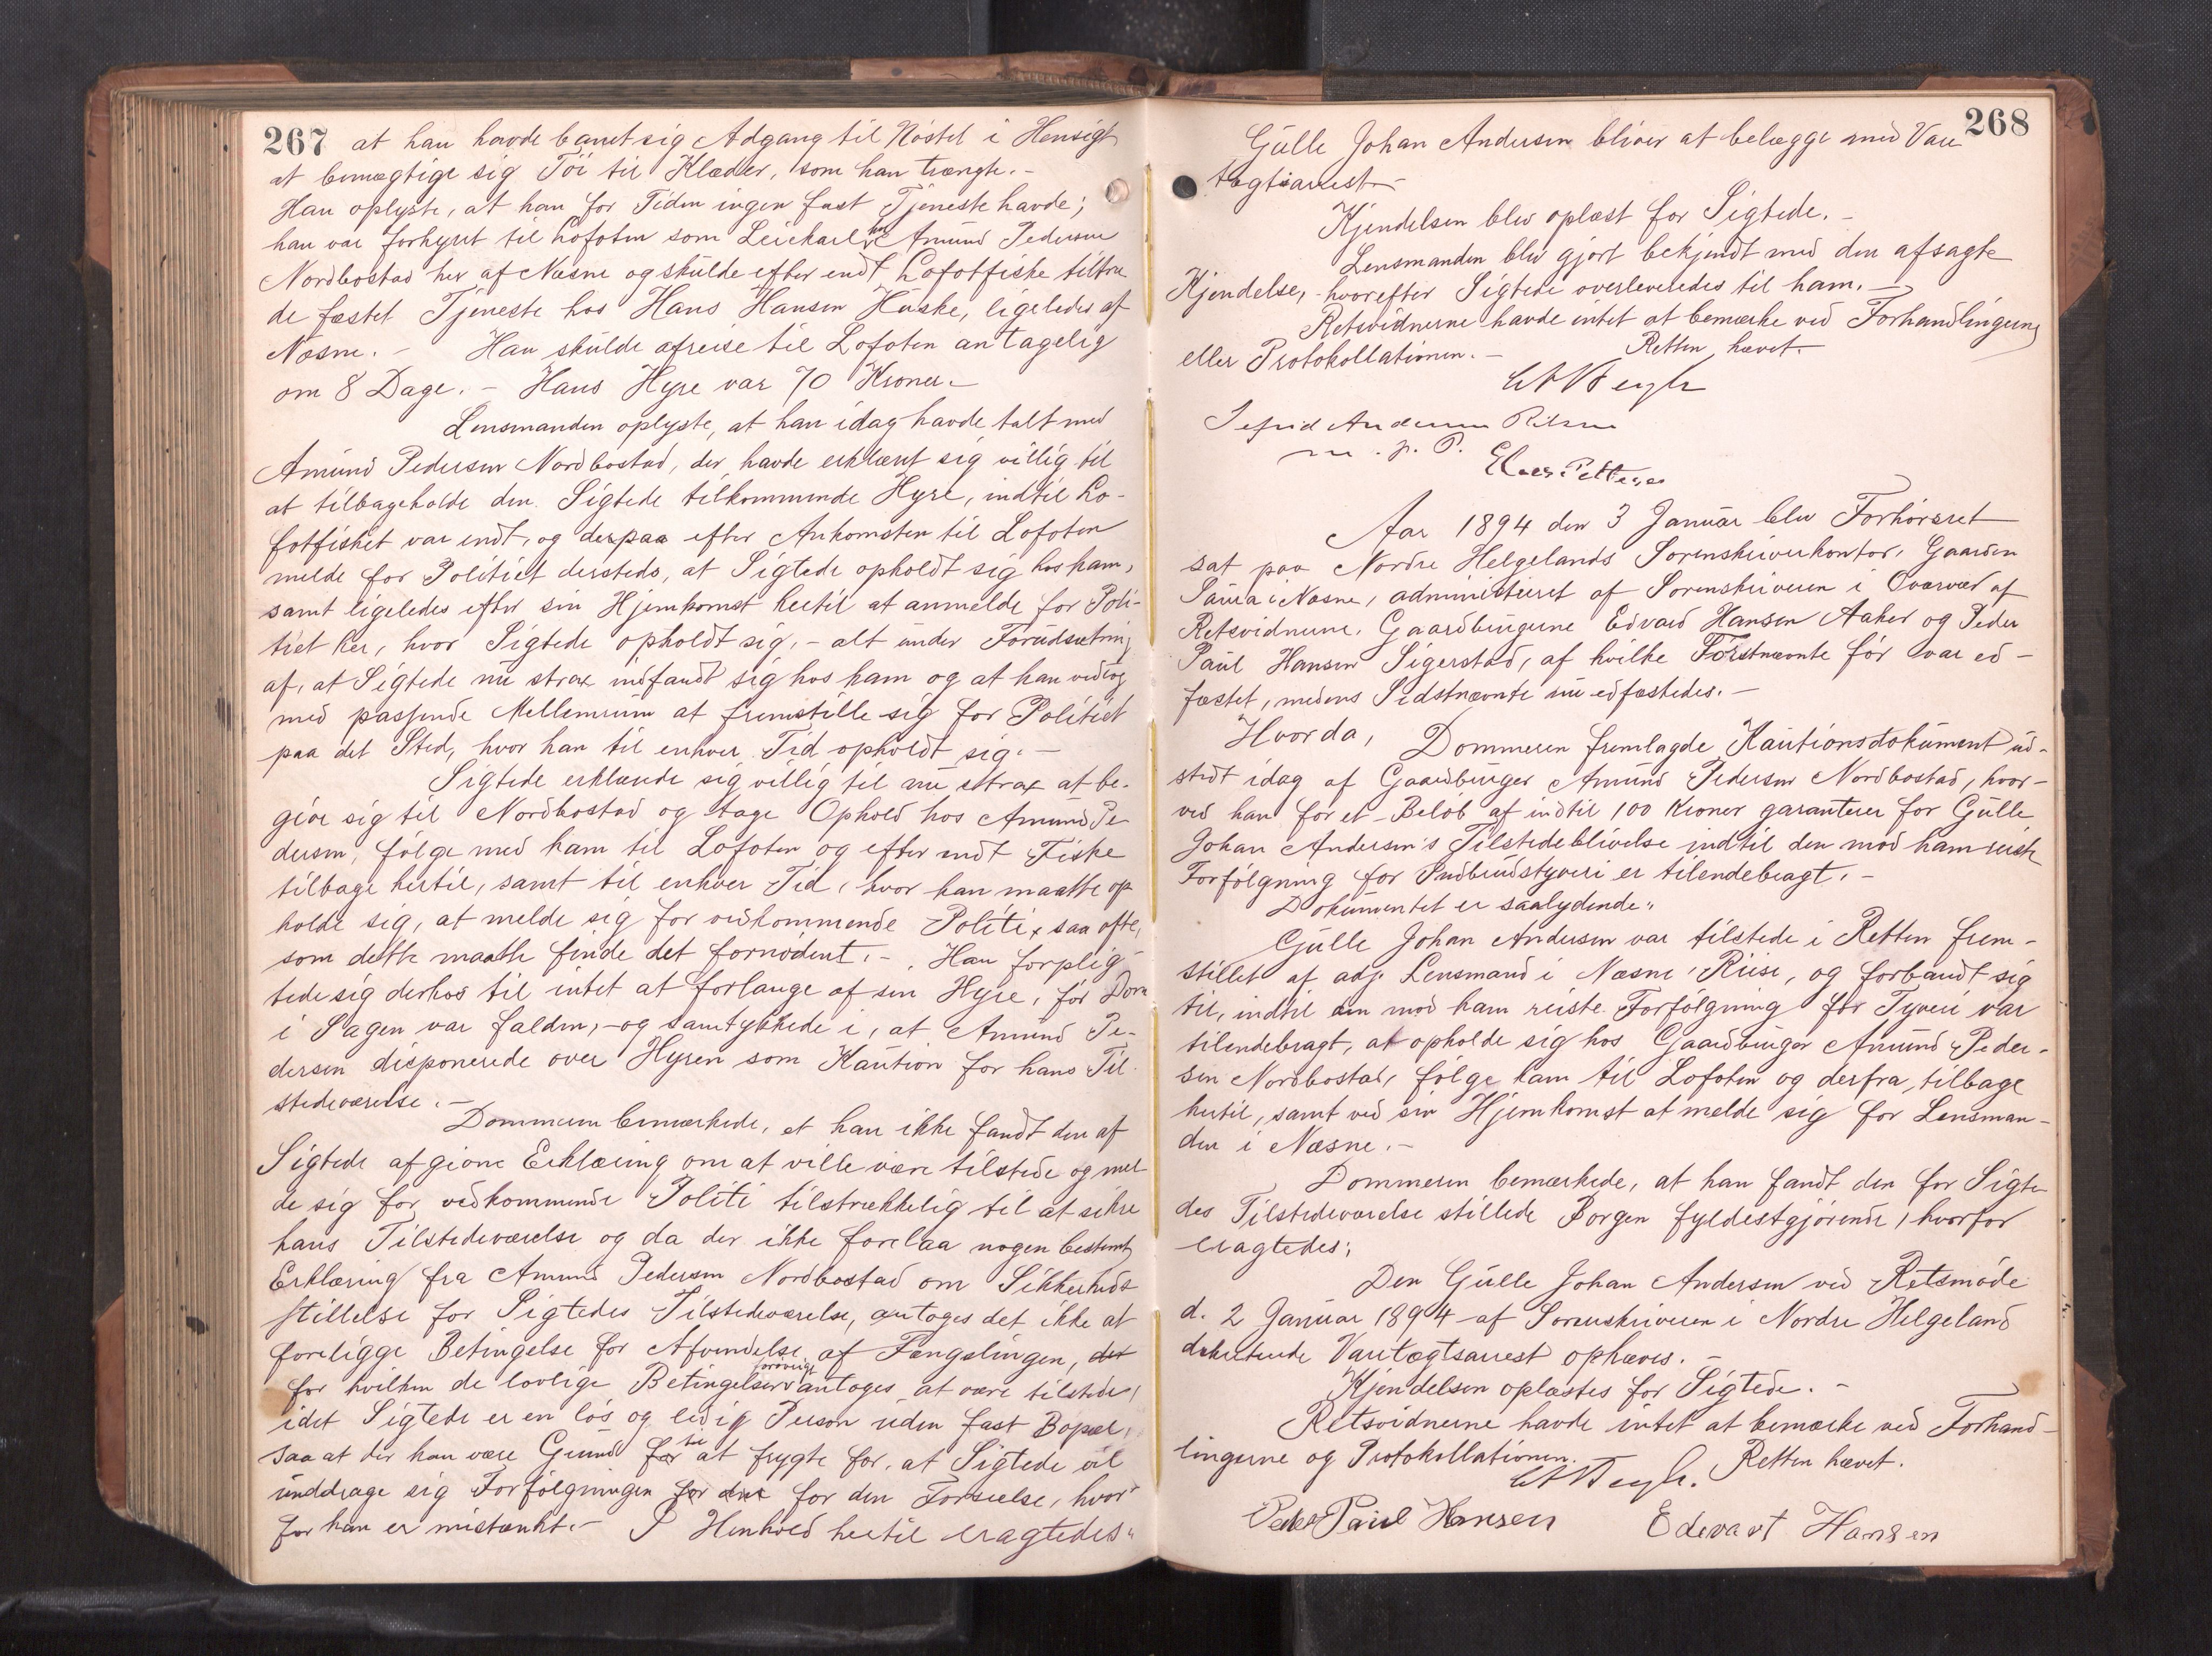 267
at han havde banet sig Adgang til Nöstet i Hensigt
at bemægtige sig Töi til Klæder, som han trængte. -
Han oplyste, at han for Tiden ingen fast Tjeneste havde;
han var forhyret til Lofoten som Leiekarl hos Amund Pedersen
Nordbostad her af Næsne og skulde efter endt Lofotfiske tiltræ
de fæstet Tjeneste hos Hans Hansen Huske, ligeledes af
Næsne. - Han skulde afreise til Lofoten antagelig
om 8 Dage. - Hans Hyre var 70 Kroner. -
Lensmanden oplyste, at han idag havde talt med
Amund Pedersen Nordbostad, der havde erklæret sig villig til
at tilbageholde den Sigtede tilkommende Hyre, indtil Lo-
fotfisket var endt, og derpaa efter Ankomsten til Lofoten
melde for Politiet dersteds, at Sigtede opholdt sig hos ham,
samt ligeledes efter sin Hjemkomst hertil at anmelde for Poli-
tiet her, hvor Sigtede opholdt sig, - alt under Forudsætning
af, at Sigtede nu strax indfandt sig hos ham og at han vedtog
med passende Mellemrum at fremstille sig for Politiet
paa det Sted, hvor han til enhver Tid opholdt sig. -
Sigtede erklærede sig villig til nu strax at be-
give sig til Nordbostad og tage Ophold hos Amund Pe
dersen, fölge med ham til Lofoten og efter endt Fiske
tilbage hertil, samt til enhver Tid, hvor han maatte op
holde sig, at melde sig for vedkommende Politi, saa ofte,
som dette maatte finde det fornödent. - Han forplig-
tede sig derhos til intet at forlange af sin Hyre, för Dom
i Sagen var falden, - og samtykkede i, at Amund Pe-
dersen disponerede over Hyren som Kaution for hans Til-
stedeværelse. -
Dommeren bemærkede, at han ikke fandt den af
Sigtede afgivne Erklæring om at ville være tilstede og mel
de sig for vedkommende Politi tilstrækkelig til at sikre
hans Tilstedeværelse og da der ikke forelaa nogen bestemt
Erklæring fra Amund Pedersen Nordbostad om Sikkerheds
stillelse for Sigtedes Tilstedeværelse, antoges det ikke at
foreligge Betingelse for Afvendelse af Fængslingen, det
for hvilken de lovlige Betingelser forövrigt antoges at være tilstede,
idet Sigtede er en lös og ledig Person uden fast Bopæl,
saa at der kan være Grund for til at frygte for, at Sigtede vil
unddrage sig Forfölgningen for den for den Forseelse, hvor-
for han er mistænkt. - I Henhold hertil eragtedes:
268
Gulle Johan Andersen bliver at belægge med Vare
tægtsarrest -
Kjendelsen blev oplæst for Sigtede. -
Lensmanden blev gjort bekjendt med den afsagte
Kjendelse, hvorefter Sigtede overleveredes til ham. -
Retsvidnerne havde intet at bemærke ved Forhandlingerne
eller Protokollationen. - Retten hævet.
Andersen
m. p. P.
Aar 1894 den 3 Januar blev Forhörsret
sat paa Nordre Helgelands Sorenskriverkontor, Gaarden
i Næsne, administreret af Sorenskriveren i Overvær af
Retsvidnerne, Gaardbrugerne Edvard Hansen Aaker og Peder
Paul Hansen Sigerstad, af hvilke Förstnævnte för var ed-
fæstet, medens Sidstnævnte nu edfæstedes. -
Hvorda, Dommeren fremlagde Kautionsdokument ud-
stedt idag af Gaardbruger Amund Pedersen Nordbostad, hvor-
ved han for et Belöb af indtil 100 Kroner garanterer for Gulle
Johan Andersen's Tilstedeblivelse indtil den mod ham reiste
Forfölgning for Indbrudstyveri er tilendebragt. -
Dokumentet er saalydende:
Gulle Johan Andersen var tilstede i Retten frem-
stillet af adj. Lensmand i Næsne, Riise, og forbandt sig
til, indtil den mod ham reiste Forfölgning for Tyveri var
tilendebragt, at opholde sig hos Gaardbruger Amund Peder-
sen Nordbostad, fölge ham til Lofoten og derfra tilbage
hertil, samt ved sin Hjemkomst at melde sig for Lensman-
den i Næsne. -
Dommeren bemærkede, at han fandt den for Sigte
des Tilstedeværelse stillede Borgen fyldestgjörende, hvorfor
eragtedes:
Den Gulle Johan Andersen ved Retsmöde
d. 2 Januar 1894 af Sorenskriveren i Nordre Helgeland
dekreterede Varetægtsarrest ophæves. -
Kjendelsen oplæstes for Sigtede. -
Retsvidnerne havde intet at bemærke ved Forhand-
lingerne og Protokollationen. Retten hævet.
Peder Paul Hansen Edevart Hansen